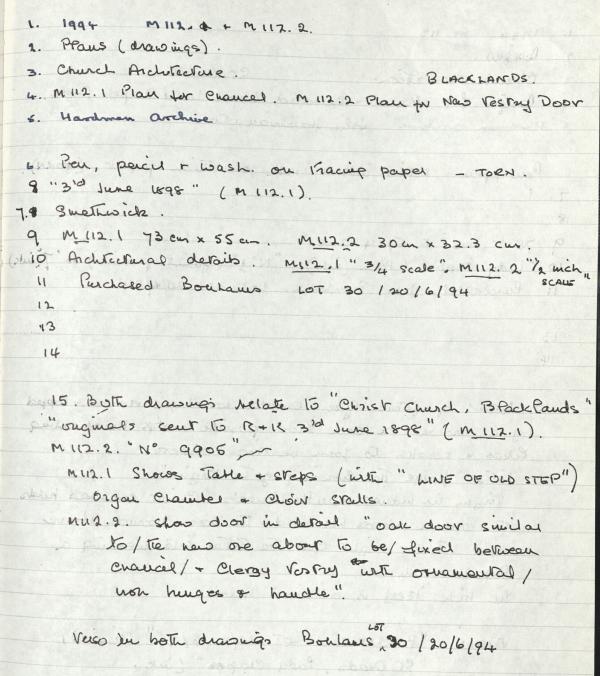 1. 1994 M112.1 + M112.2.
2. Plans (drawings).
3. Church Architecture. BLACKLANDS.
4. M112.1 Plan for Chancel. M112.2 Plan for New Vestry Door
5. Hardman Archive
6 Pen, pencil + wash. on tracing paper - TORN.
8 "3rd June 1898" (M112.1).
7. Smethwick.
9 M112.1 73cm x 55cm. M112.2 30cm x 32.3 cm.
10 Architectural details. M112.1 "3/4 scale". M112.2 "1/2 inch SCALE"
11 Purchased Bonhams LOT 30 / 20/6/94
12
13
14
15. Both drawings relate to "Christ Church, Blacklands"
"originals sent to R+K 3rd June 1898" (M112.1).
M112.2. "No 9905"
M112.1 Shows Table + steps (with "LINE OF OLD STEP")
Organ Chamber + Choir Stalls.
M112.2. show door in detail "oak door similar
to/the new one about to be/fixed between
chancel/+ Clergy Vestry with ornamental/
iron hinges & handle".
Verso in both drawings Bonhams LOT 30 / 20/6/94